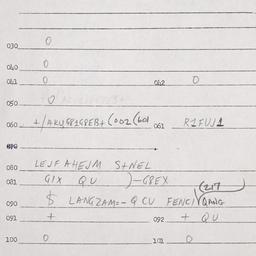 030 0
040 0
041 0 042 0
050 0
060 +/AKU981G8EB+(002(601 061 R1FUJ1
070
080 LEJF AHEJM S+NEL
081 GIX QU )-G8EX
(217
090 $ LANGZAM=-Q CU FENCI QANG
091 + 092 + QU
100 0 101 0